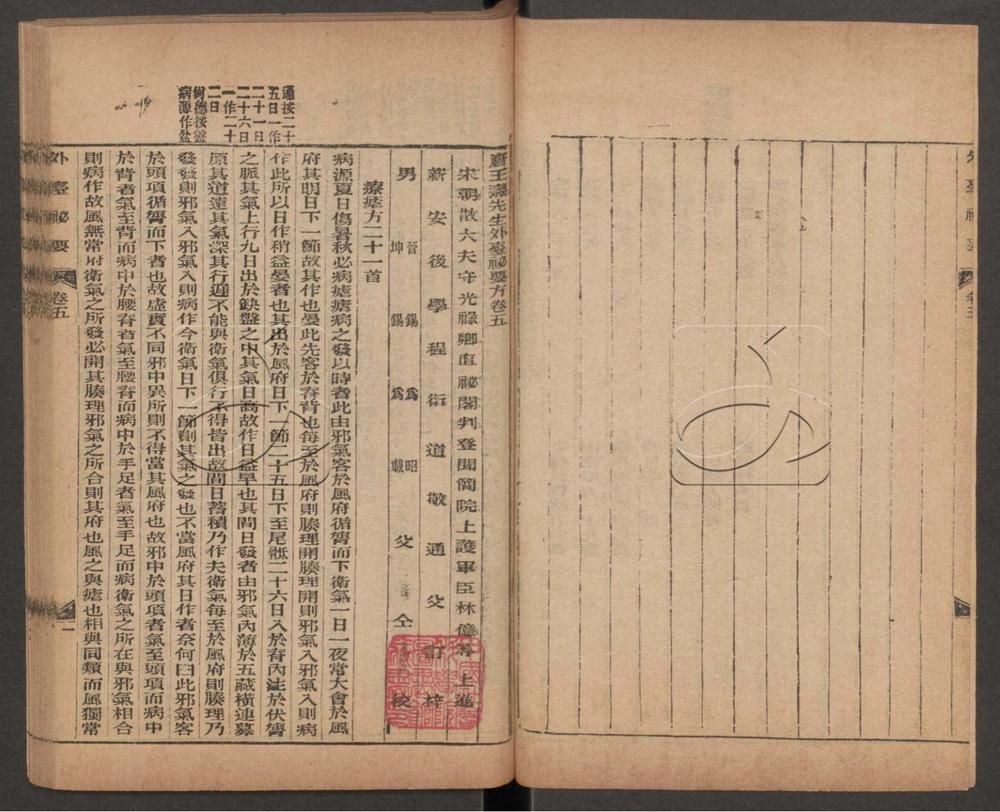 重王燾先生外臺祕要方卷五
宋朝散大夫守光祿卿直祕閣判登聞簡院上護軍臣林億等上進
新安後學程衍道敬通父訂梓
男
晉錫為昭
坤錫為戩
父仝校
療瘧方二十一首
病源夏日傷暑秋必病瘧瘧病之發以時者此由邪氣客於風府循膂而下衛氣一日一夜常大會於風
府其明日下一節故其作也晏此先客於脊背也每至於風府則腠理開腠理開則邪氣入邪氣入則病
作此所以日作稍益晏者也其出於風府日下一節二十五日下至尾骶二十六日入於脊內注於伏膂
之脈其氣上行九日出於缺盤之中其氣日高故作日益早也其間日發者由邪氣內薄於五藏橫連募
原其道遠其氣深其行遲不能與衛氣俱行不得皆出故間日蓄積乃作夫衛氣每至於風府則腠理乃
發發則邪氣入邪氣入則病作今衛氣日下一節則其氣之發也不當風府其日作者奈何曰此邪氣客
於頭項循膂而下者也故虛實不同邪中異所則不得當其風府也故邪中於頭項者氣至頭項而病中
於背者氣至背而病中於腰脊者氣至腰脊而病中於手足者氣至手足而病衛氣之所在與邪氣相合
則病作故風無常府衛氣之所發必開其腠理邪氣之所合則其府也風之與瘧也相與同類而風獨常
通按二十
五日一作
二十一日
二十六日
一作二十
二日
尙德按盤
病源作盆
外臺祕要
卷五
一